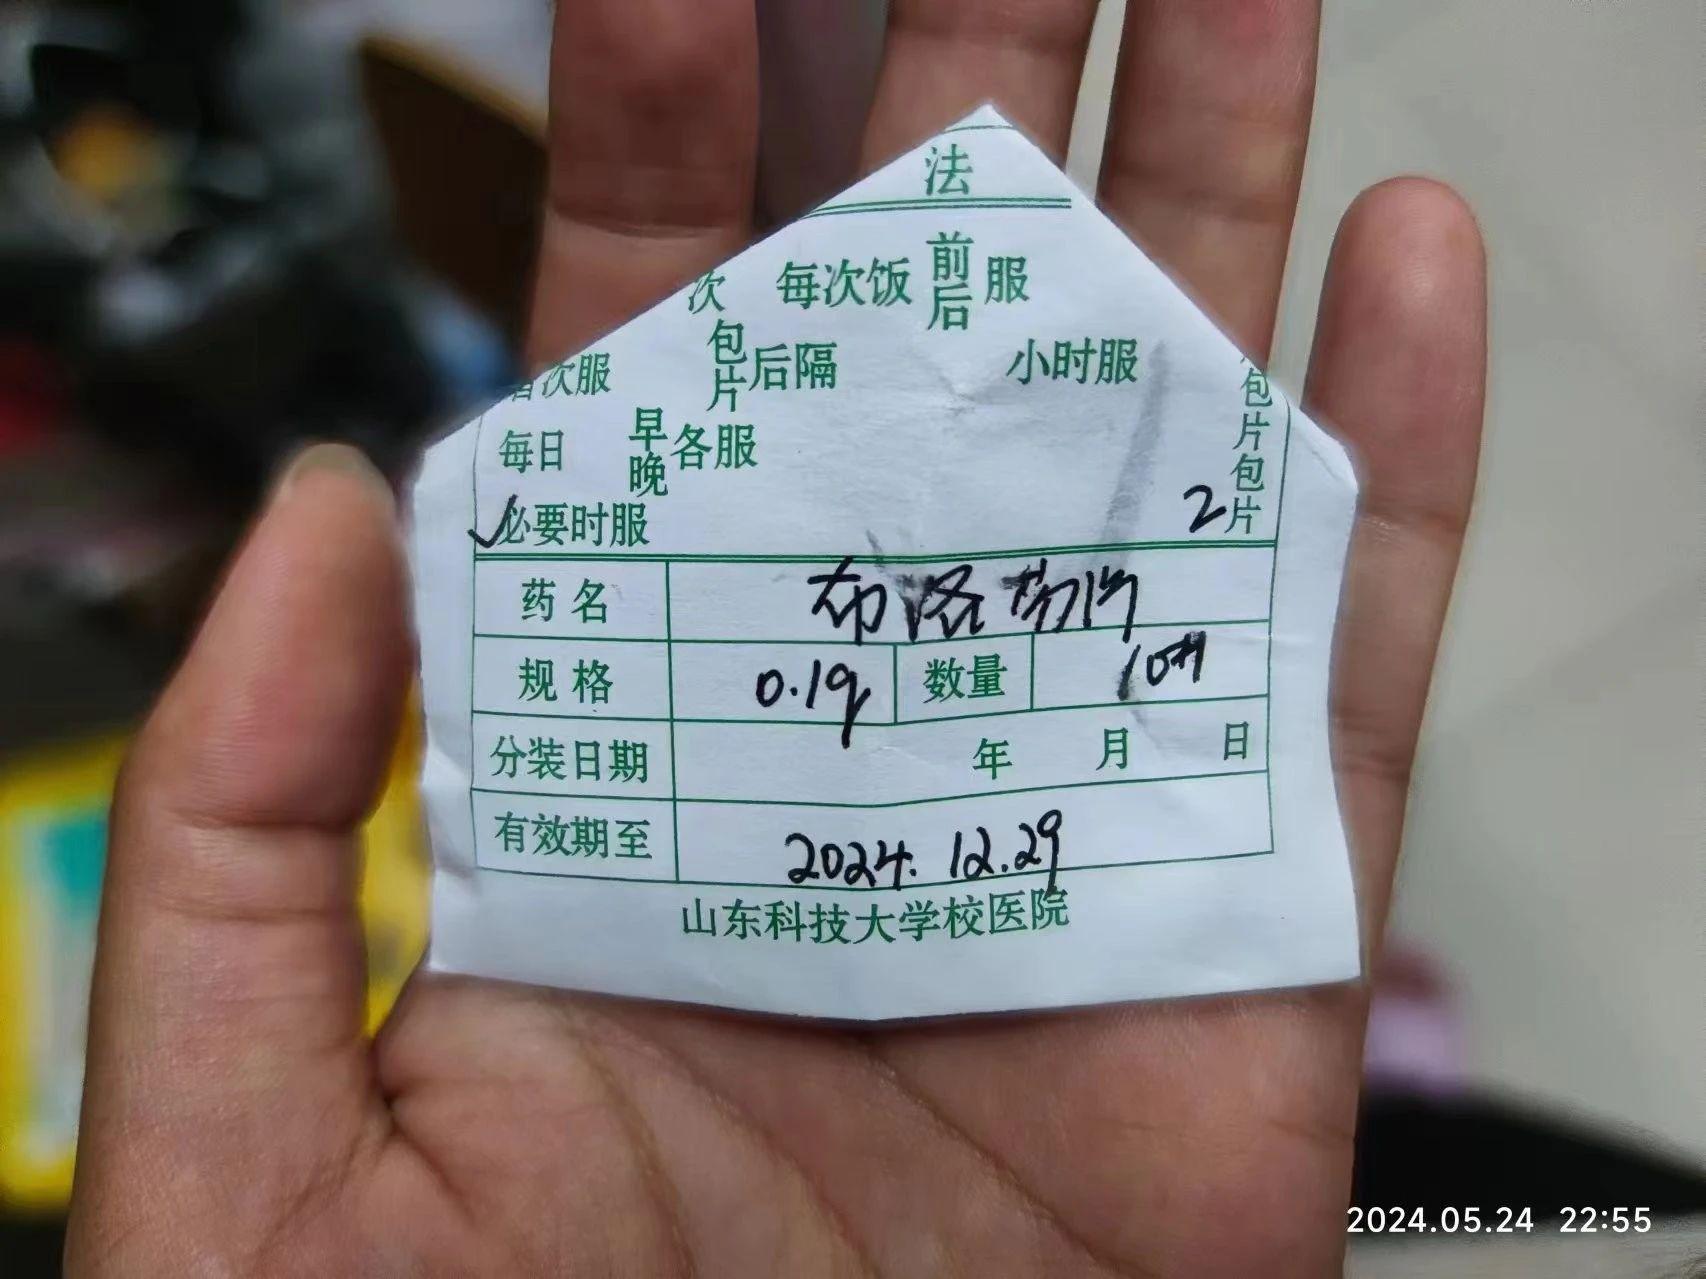 法
次 每次饭前后服
首次服 包片 后隔 小时服 包片
每日 早晚 各服 包片
✓必要时服 2片
药名 布洛芬片
规格 0.1g 数量 10片
分装日期 年 月 日
有效期至 2024.12.29
山东科技大学校医院
2024.05.24 22:55